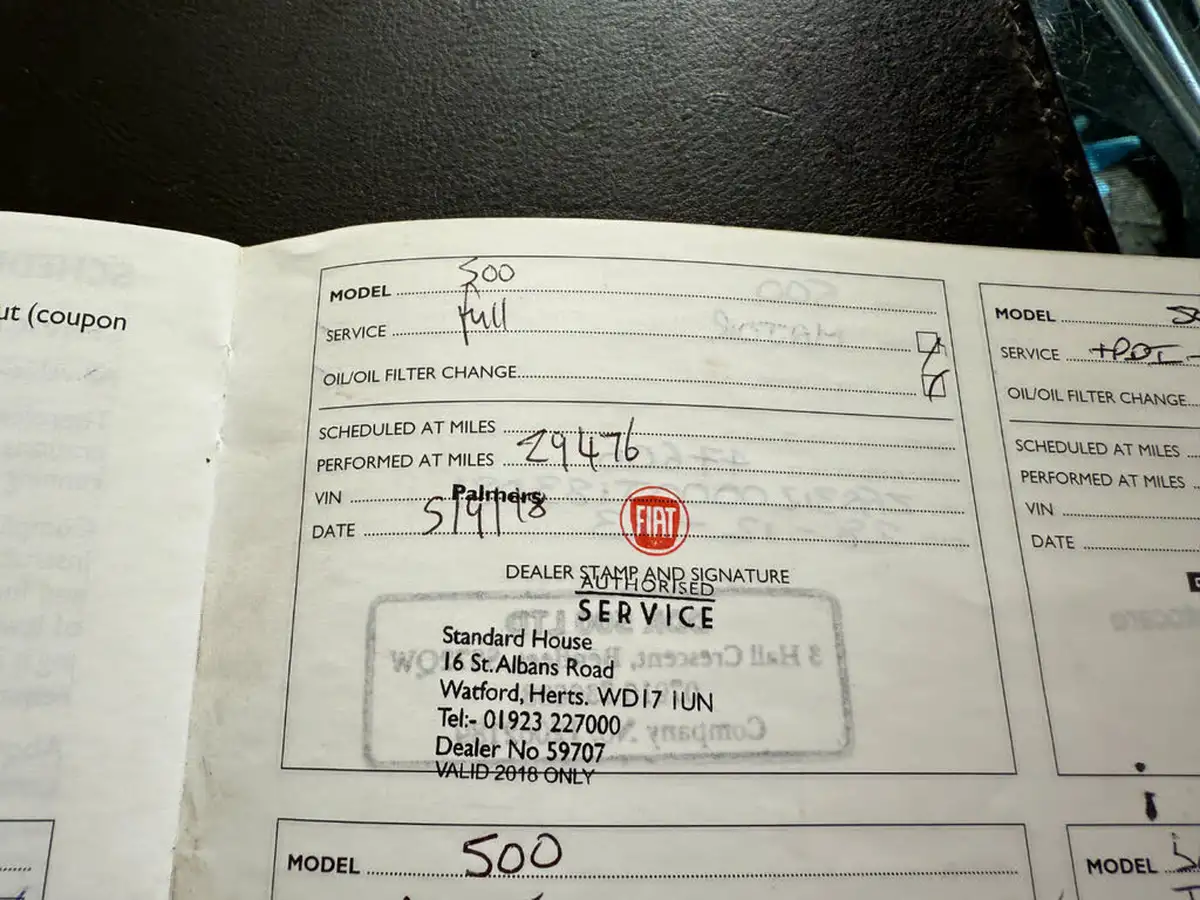 ut (coupon
MODEL 500
SERVICE full
OIL/OIL FILTER CHANGE
SCHEDULED AT MILES
PERFORMED AT MILES 29476
VIN
Palmers
DATE 5/9/18
FIAT
DEALER STAMP AND SIGNATURE
AUTHORISED
SERVICE
Standard House
16 St. Albans Road
Watford, Herts. WD17 1UN
Tel:- 01923 227000
Dealer No 59707
VALID 2018 ONLY
MODEL
SERVICE
OIL/OIL FILTER CHANGE
SCHEDULED AT MILES
PERFORMED AT MILES
VIN
DATE
MODEL 500
MODEL